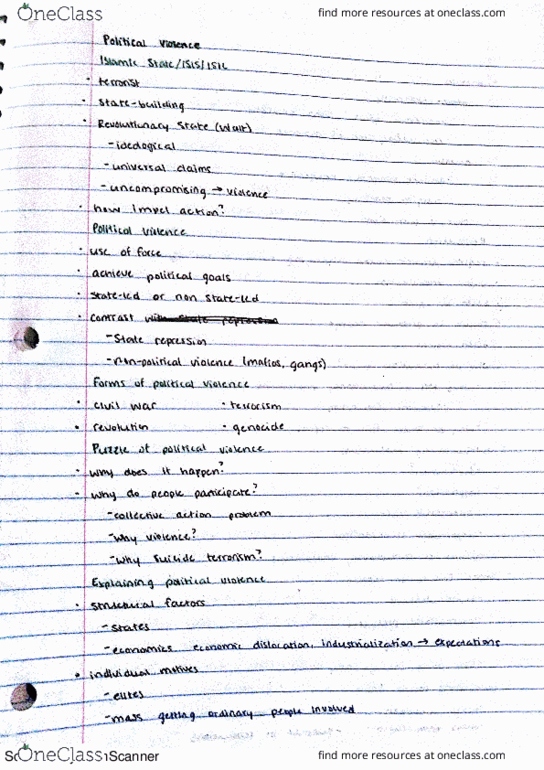 OneClass
find more resources at oneclass.com
Political Violence
Islamic State/ISIS/ISIL
· terrorist
· state-building
· Revolutionary State (Walt)
- ideological
- universal claims
- uncompromising → violence
· how impel action?
Political violence
· use of force
· achieve political goals
· state-led or non state-led
· contrast with state repression
- State repression
- non-political violence (mafias, gangs)
Forms of political violence
· civil war · terrorism
· revolution · genocide
Puzzle of political violence
· why does it happen?
· why do people participate?
- collective action problem
- why violence?
- why suicide terrorism?
Explaining political violence
· structural factors
- states
- economics economic dislocation, industrialization → expectations
· individual motives
- elites
- mass getting ordinary people involved
OneClass
Scanner
find more resources at oneclass.com